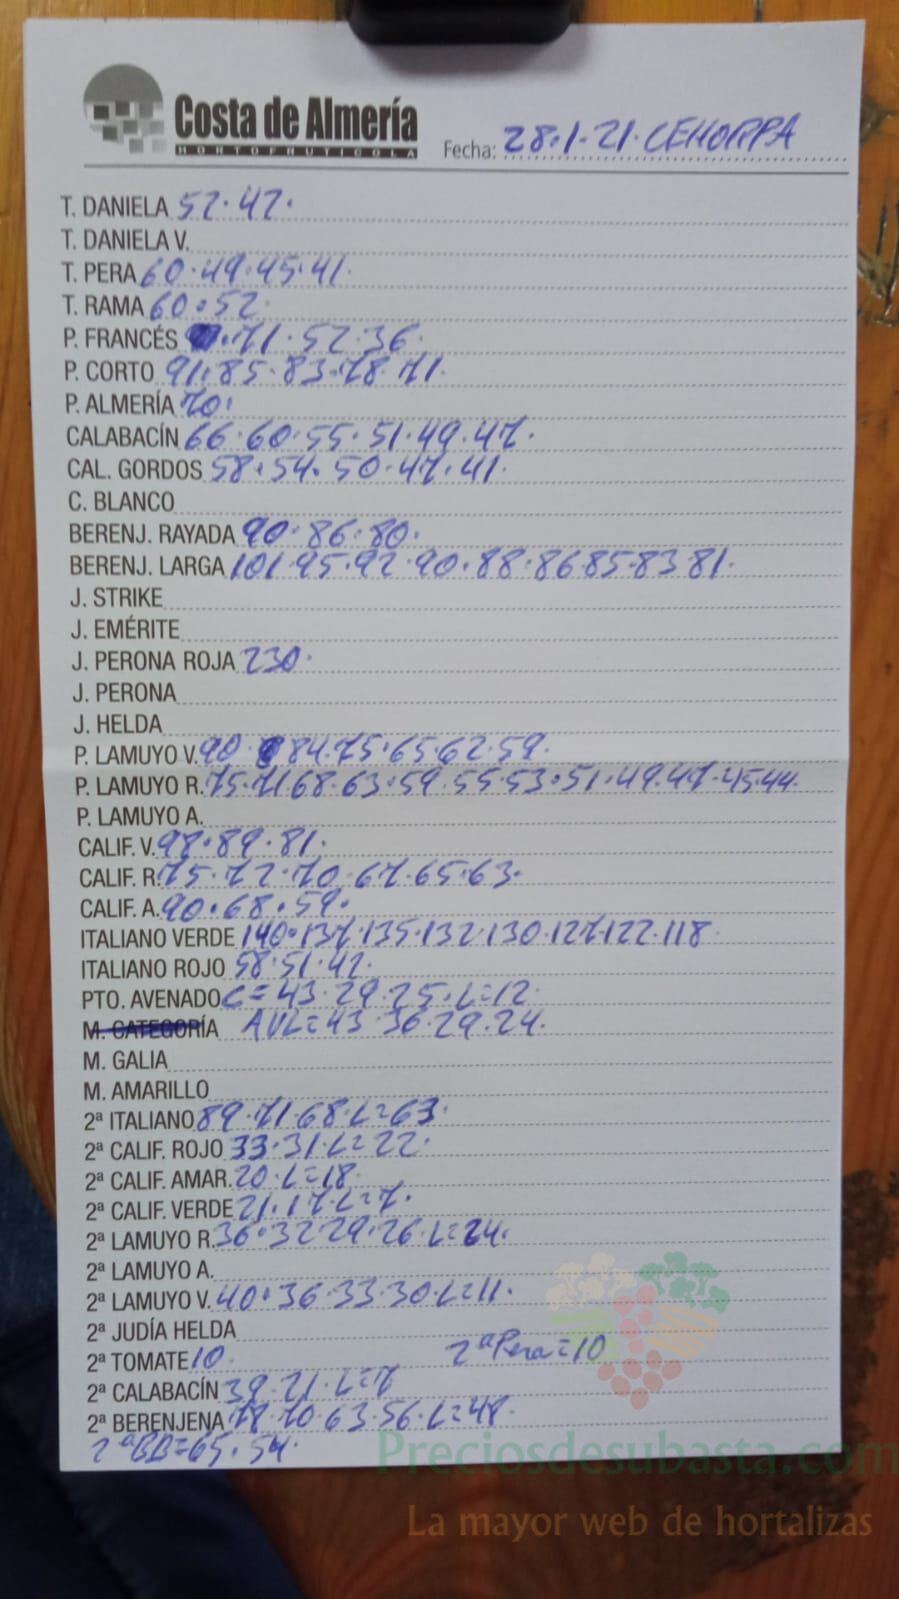 Costa de Almería
HORTOFRUTICOLA
Fecha: 28.1.21. CEHORPA
T. DANIELA 52.42.
T. DANIELA V.
T. PERA 60.49.45.41.
T. RAMA 60.52.
P. FRANCÉS .71.52.36.
P. CORTO 91.85.83.78.71.
P. ALMERÍA 70.
CALABACÍN 66.60.55.51.49.47.
CAL. GORDOS 58.54.50.47.41.
C. BLANCO
BERENJ. RAYADA 90.86.80.
BERENJ. LARGA 101.95.92.90.88.86.85.83.81.
J. STRIKE
J. EMÉRITE
J. PERONA ROJA 230.
J. PERONA
J. HELDA
P. LAMUYO V. 90.84.75.65.62.59.
P. LAMUYO R. 75.71.68.63.59.55.53.51.49.47.45.44.
P. LAMUYO A.
CALIF. V. 98.89.81.
CALIF. R. 75.72.70.67.65.63.
CALIF. A. 90.68.59.
ITALIANO VERDE 140.137.135.132.130.127.122.118.
ITALIANO ROJO 58.51.42.
PTO. AVENADO C=43.29.25.L=12.
M. CATEGORÍA AVL=43.36.29.24.
M. GALIA
M. AMARILLO
2ª ITALIANO 89.71.68.L=63.
2ª CALIF. ROJO 33.31.L=22.
2ª CALIF. AMAR. 20.L=18.
2ª CALIF. VERDE 21.17.L=7.
2ª LAMUYO R. 36.32.29.26.L=24.
2ª LAMUYO A.
2ª LAMUYO V. 40.36.33.30.L=11.
2ª JUDÍA HELDA
2ª TOMATE 10. 2ª Pera=10
2ª CALABACÍN 39.21.L=7
2ª BERENJENA 78.70.63.56.L=48.
2ª BB=65.54.
Preciosdesubasta.com
La mayor web de hortalizas